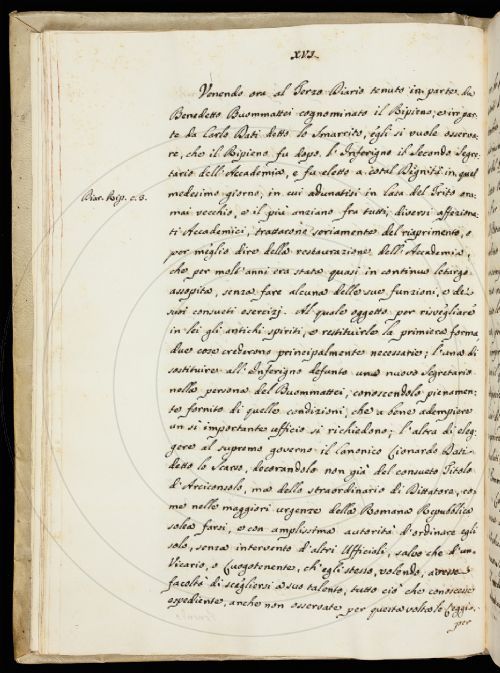 XVI.
Venendo ora al Terzo Diario tenuto in parte da
Benedetto Buommattei cognominato il Ripieno, e in par-
te da Carlo Dati detto lo Smarrito, egli si vuole osserva-
re, che il Ripieno fu dopo l'Inferigno il Secondo Segre-
tario dell'Accademia, e fu eletto a cotal Dignità in quel
Diar. Rip. c. 3.
medesimo giorno, in cui adunatisi in Casa del Trito ora-
mai vecchio, e il più anziano fra tutti, diversi affeziona-
ti Accademici, trattarono seriamente del riaprimento, o
per meglio dire della restaurazione dell'Accademia,
che per molt'anni era stata quasi in continuo letargo
assopita, senza fare alcuna delle sue funzioni, e de'
suoi consueti esercizj. Al quale oggetto per risvegliare
in lei gli antichi spiriti, e restituirle la primiera forma,
due cose crederono principalmente necessarie; l'una di
sostituire all'Inferigno defunto un nuovo Segretario
nella persona del Buommattei, conoscendolo pienamen-
te fornito di quelle condizioni, che a bene adempiere
un sì importante ufficio si richiedono; l'altra di eleg-
gere al supremo governo il Canonico Lionardo Dati
detto lo Scaro, decorandolo non già del consueto Titolo
d'Arciconsolo, ma dello straordinario di Dittatore, co-
me nelle maggiori urgenze della Romana Repubblica
solea farsi, e con amplissima autorità d'ordinare egli
solo, senza intervento d'altri Ufficiali, salvo che d'un
Vicario, o Luogotenente, ch'egli stesso, volendo, avesse
facoltà di scegliersi a suo talento, tutto ciò che conoscesse
espediente, anche non osservate per questa volta le Leggi,
per